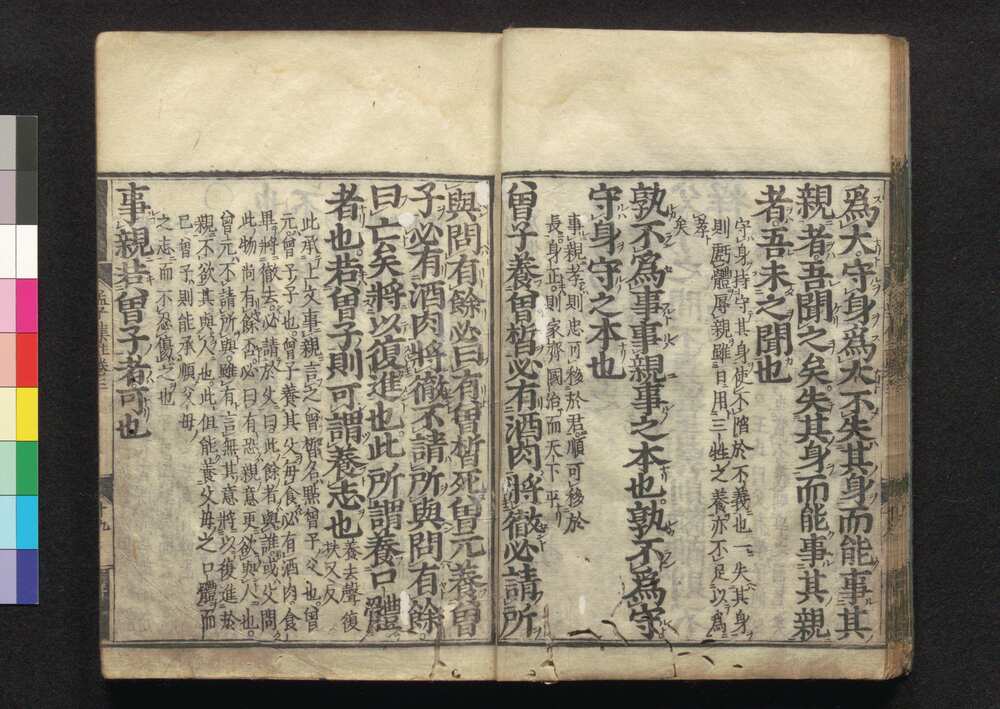 爲大守身爲大不失其身而能事其
親者吾聞之矣失其身而能事其親
者吾未之聞也
守身持守其身使不陷於不義也一失其身
則虧體辱親雖日用三牲之養亦不足以爲
孝矣
孰不爲事事親事之本也孰不爲守
守身守之本也
事親孝則忠可移於君順可移於
長身正則家齊國治而天下平
曽子養曽皙必有酒肉將徹必請所
與問有餘必曰有曽皙死曽元養曽
子必有酒肉將徹不請所與問有餘
曰亡矣將以復進也此所謂養口體
者也若曽子則可謂養志也
養去聲復
扶又反
此承上文事親言之曽皙名點曽子父也曽
元曽子子也曽子養其父每食必有酒肉食
畢將徹去必請於父曰此餘者與誰或父問
此物尚有餘否必曰有恐親意更欲與人也
曽元不請所與雖有言無其意將以復進於
親不欲其與人也此但能養父母之口體而
已曽子則能承順父母
之志而不忍傷之也
事親若曽子者可也